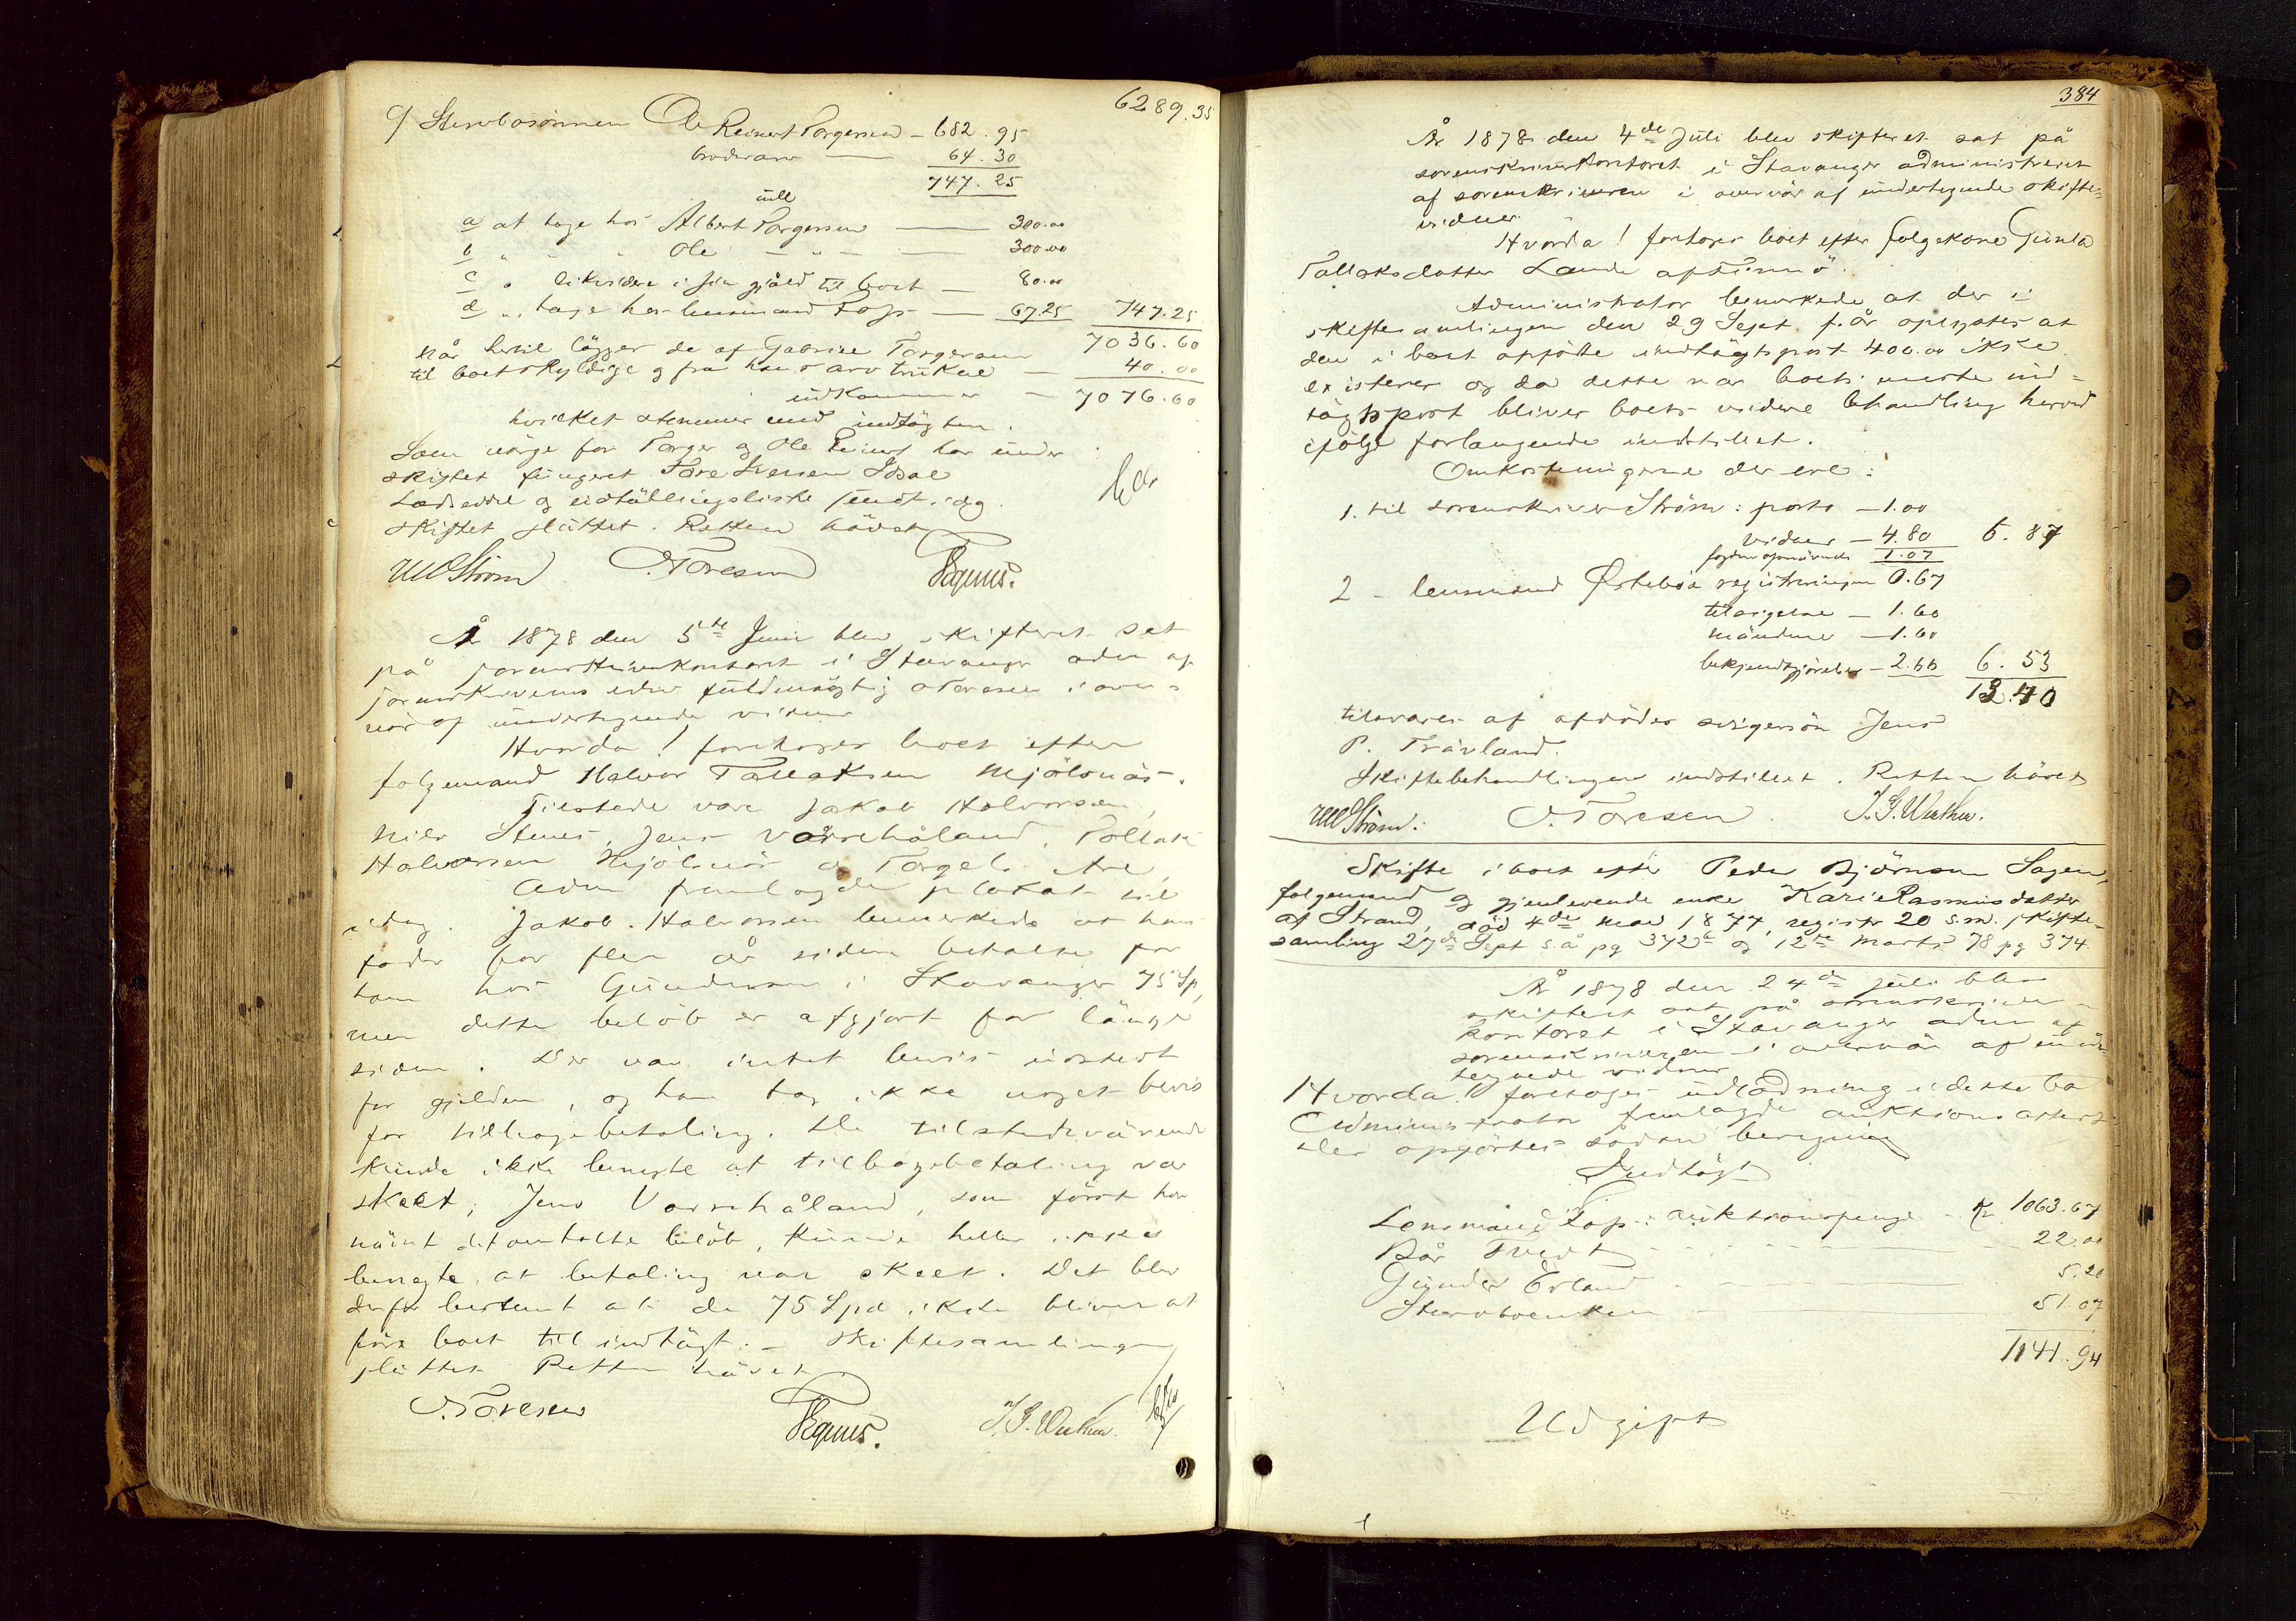 6289.35
9/ Stervbosønnen Ole Reinert Torgersen - 682.95
broderarv — 64.30
747.25
a at tage hos Albert Torgersen — 300.00
b " " " Ole — " — — 300.00
c " likvidere i sin gjæld til boet — 80.00
d ", tage hos lensmand Fop — 67.25 747.25
7036.60
når hertil lægges de af Gabriel Torgersen
til boet skyldige og fra hans arv trukne — 40.00
indkommer — 7076.60
hvilket stemmer med indtægten.
Som værge for Torger og Ole Reinert har under
skiftet fungeret Tore Iversen Idsal
Lodsedel og udtællingsliste sendt idag.
Skiftet sluttet. Retten hævet
MStrøm NToresen
År 1878 den 5te Juni blev skifteret sat
på sorenskriverkontoret i Stavanger adm af
sorenskriverens edsv fuldmægtig NToresen i over-
vær af undertegnede vidner
Hvorda! foretoges boet efter
følgemand Halvor Tallaksen Mjølsnæs.
Tilstede vare Jakob Halvorsen,
Nils Stenes, Jens Vårrehåland, Tollak
Halvorsen Mjølsnæs og Torgels Are,
Adm fremlagde plakat til
idag. Jakob Halvorsen bemerkede at hans
fader for flere år siden betalte for
ham hos Gundersen i Stavanger 75 Sp,
men dette beløb er afgjort for længe
siden. Der var intet bevis udstedt
for gjelden, og han tog ikke noget bevis
for tilbagebetaling. De tilstedeværende
kunde ikke benegte at tilbagebetaling var
skeet; Jens Varrehåland, som først har
nævnt det omtalte beløb, kunde heller ikke
benegte, at betaling var skeet. Det blev
derfor bestemt at de 75 Spd ikke bliver at
føre boet til indtægt. — Skiftesamlingen
sluttet Retten hævet.
NToresen J.G.Wathne.
384
År 1878 den 4de Juli blev skifteret sat på
sorenskriverkontoret i Stavanger administreret
af sorenskriveren i overvær af undertegnede skifte=
vidner.
Hvorda! foretoges boet efter følgekone Gunla
Tallaksdatter Lande af
Administrator bemerkede at der i
skiftesamlingen den 29 Sept f. år oplystes at
den i boet opførte indtægtspost 400.00 ikke
existerer og da dette var boets meste ind=
tægtspost bliver boets videre behandling herved
ifølge forlangende indstillet.
Omkostningerne der ere:
1. til sorenskriver Strøm: porto — 1.00
vidner — 4.80 6.87
1.07
2 - lensmand Østebøe registreringen 0.67
tilsigelse — 1.60
mændene — 1.60
bekjendtgjørelse — 2.66 6.53
13.40
tilsvares af afdødes svigersøn Jens
P. Trævland.
Skiftebehandlingen indstillet. Retten hævet
MStrøm. NToresen. J.G.Wathne.
Skifte i boet efter Peder Bjørnsen Sagen,
følgemand og gjenlevende enke Karie Rasmusdatter
af Strand, død 4de Mai 1877, registr 20 s.m. skifte-
samling 27de Sept s.å pg 372b og 12te Marts 78 pg 374.
År 1878 den 24de Juli blev
skifteret sat på sorenskriver-
kontoret i Stavanger adm af
sorenskriveren i overvær af under
tegnede vidner
Hvorda! foretoges udlodning i dette bo
Administrator fremlagde auktions
der opgjørtes sådan beregning
Indtægt
Lensmand Fop: auktionspenge — Kr 1063.67
Bår Tvedt — — — 22.00
Gunder Erland — — — 5.20
Stervboenken — — — 51.07
1141.94
Udgift